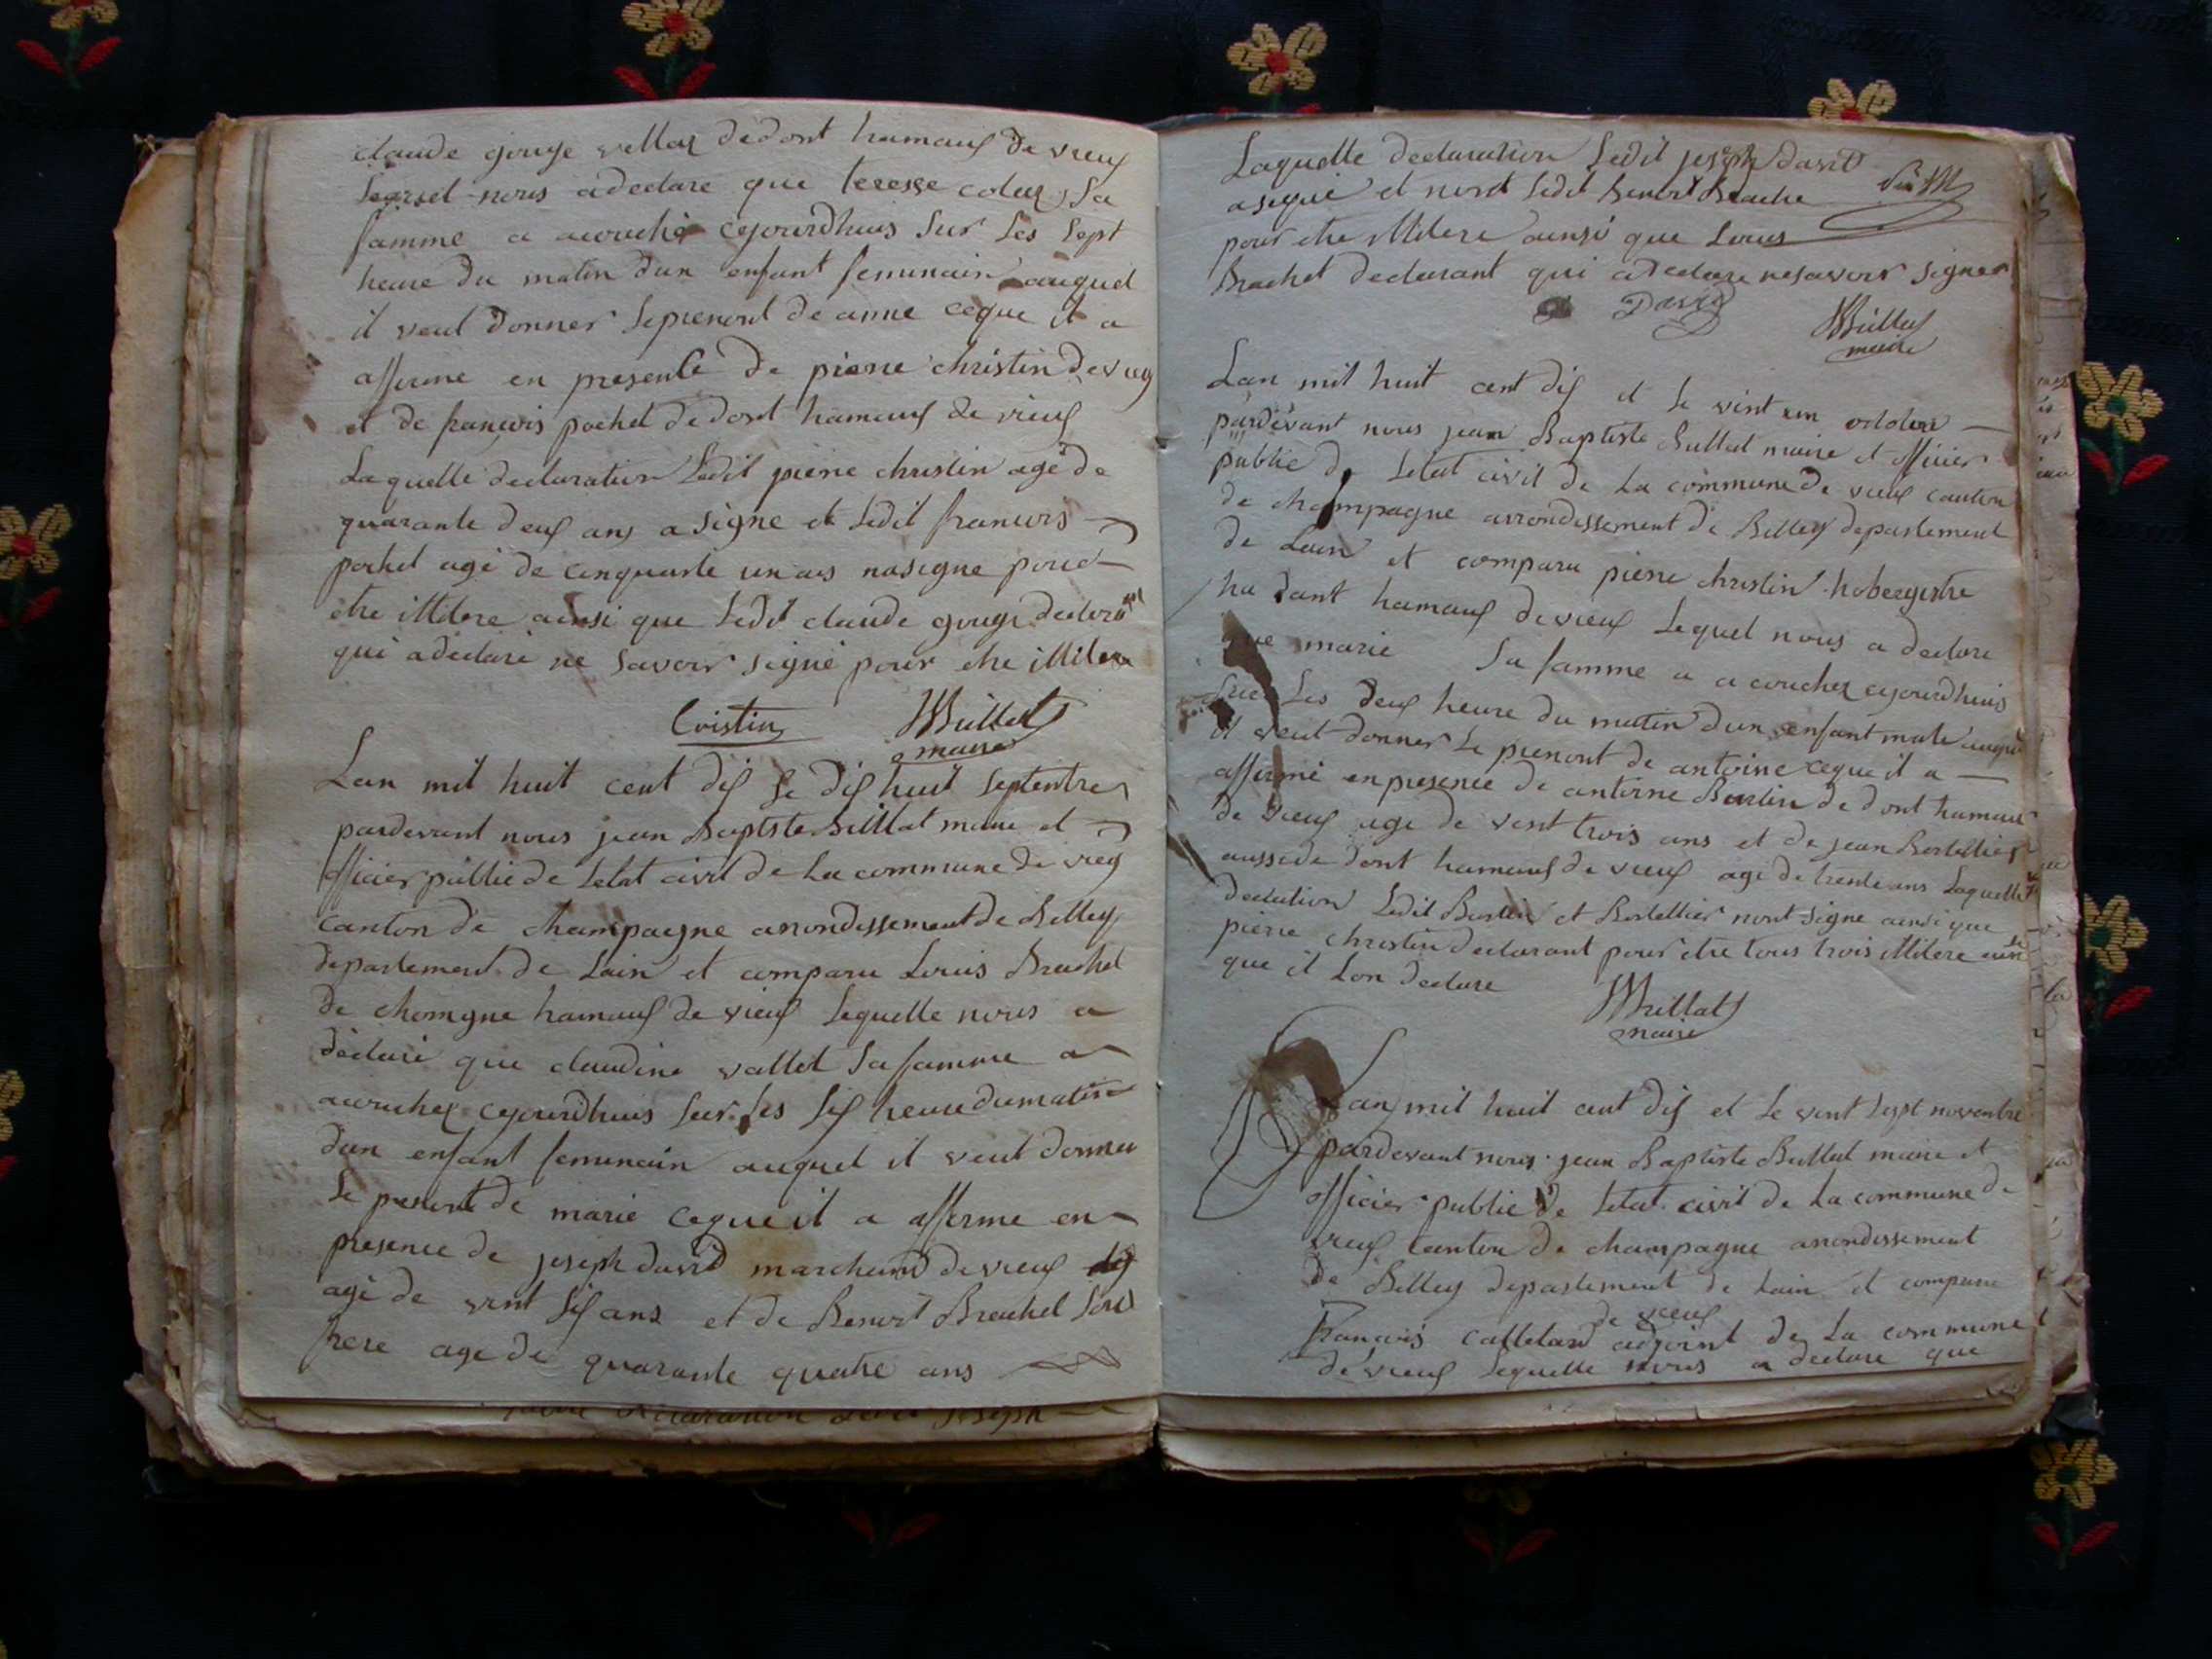 claude gouge vellaz dedont hamauf de vieuf
lequel nous adeclare que teresse colaz sa
famme a acouché cejourdhuis sur les sept
heure du matin dun enfant femünain auquel
il veut donner leprenont de anne ceque il a
afferme en presente de pierre christin de vieuf
et de francois pochet dedont hamauf de vieuf
Laquelle declaration Ledit pierre christin agé de
quarante deuf ans a signe et ledit francois
pochet agé de cinquante un ans nasigne pour
etre illitere ainsi que ledit claude gouge declarant
qui adeclaré ne savoir signé pour etre illitere
Cristin JBBillat
maire
Lan mil huit cent dif le dif huit septentre
pardevant nous jean Baptiste Billat maire et
officier publie de letat civil de la commune de vieuf
canton de champagne arrondissement de Belley
departement de Lain et comparu Louis Brachet
de chomgne hamauf de vieuf lequelle nous a
déclaré que claudine vallet sa famme a
acouchez cejourdhuis sur les sif heure dumatin
dun enfant femunain auquel il veut donner
le prenont de marie ceque il a afferme en
presence de joseph david marchand de vieuf
agé de vint sif ans et de Benoit Brachet son
frere age de quarante quatre ans
Laquelle declaration ledit joseph david
asigné et nont ledit Benoit Brache
pour etre illitere ainsi que Louis
Brachet declarant qui adeclare nesavoir signer
David JBBillat
maire
Lan mil huit cent dif et le vint un octobre
pardevant nous jean Baptiste Billat maire et officier
publie de letat civil de la commune de vieuf canton
de champagne arrondissement de Belley departement
de Lain et comparu pierre christin hobergistre
ha dont hamauf de vieuf Lequel nous a declare
que marie sa famme a acouchez cejourdhuis
sur les deuf heure du matin dun enfant male auquel
il veut donner le prenont de antoine ceque il a
affermé enpresence de antoine Bertin de dont hamauf
de vieuf age de vent trois ans et de jean Bertellier
aussi de dont hamauf de vieuf age de trente ans Laquelle
declation ledit Bertin et Bertellier nont signe ainsi que
pierre christin declarant pour etre tous trois illitere ainsi
que il lon declare
JBBillat
maire
Lan mil huit cent dif et le vint sept noventre
pardevant nous jean Baptiste Billat maire et
officier publie de letat civil de la commune de
vieuf canton de champagne arrondissement
de Belley departement de Lain et comparu
de vieuf
Francois calletard adjoint de la commune
de vieuf lequelle nous a declare que